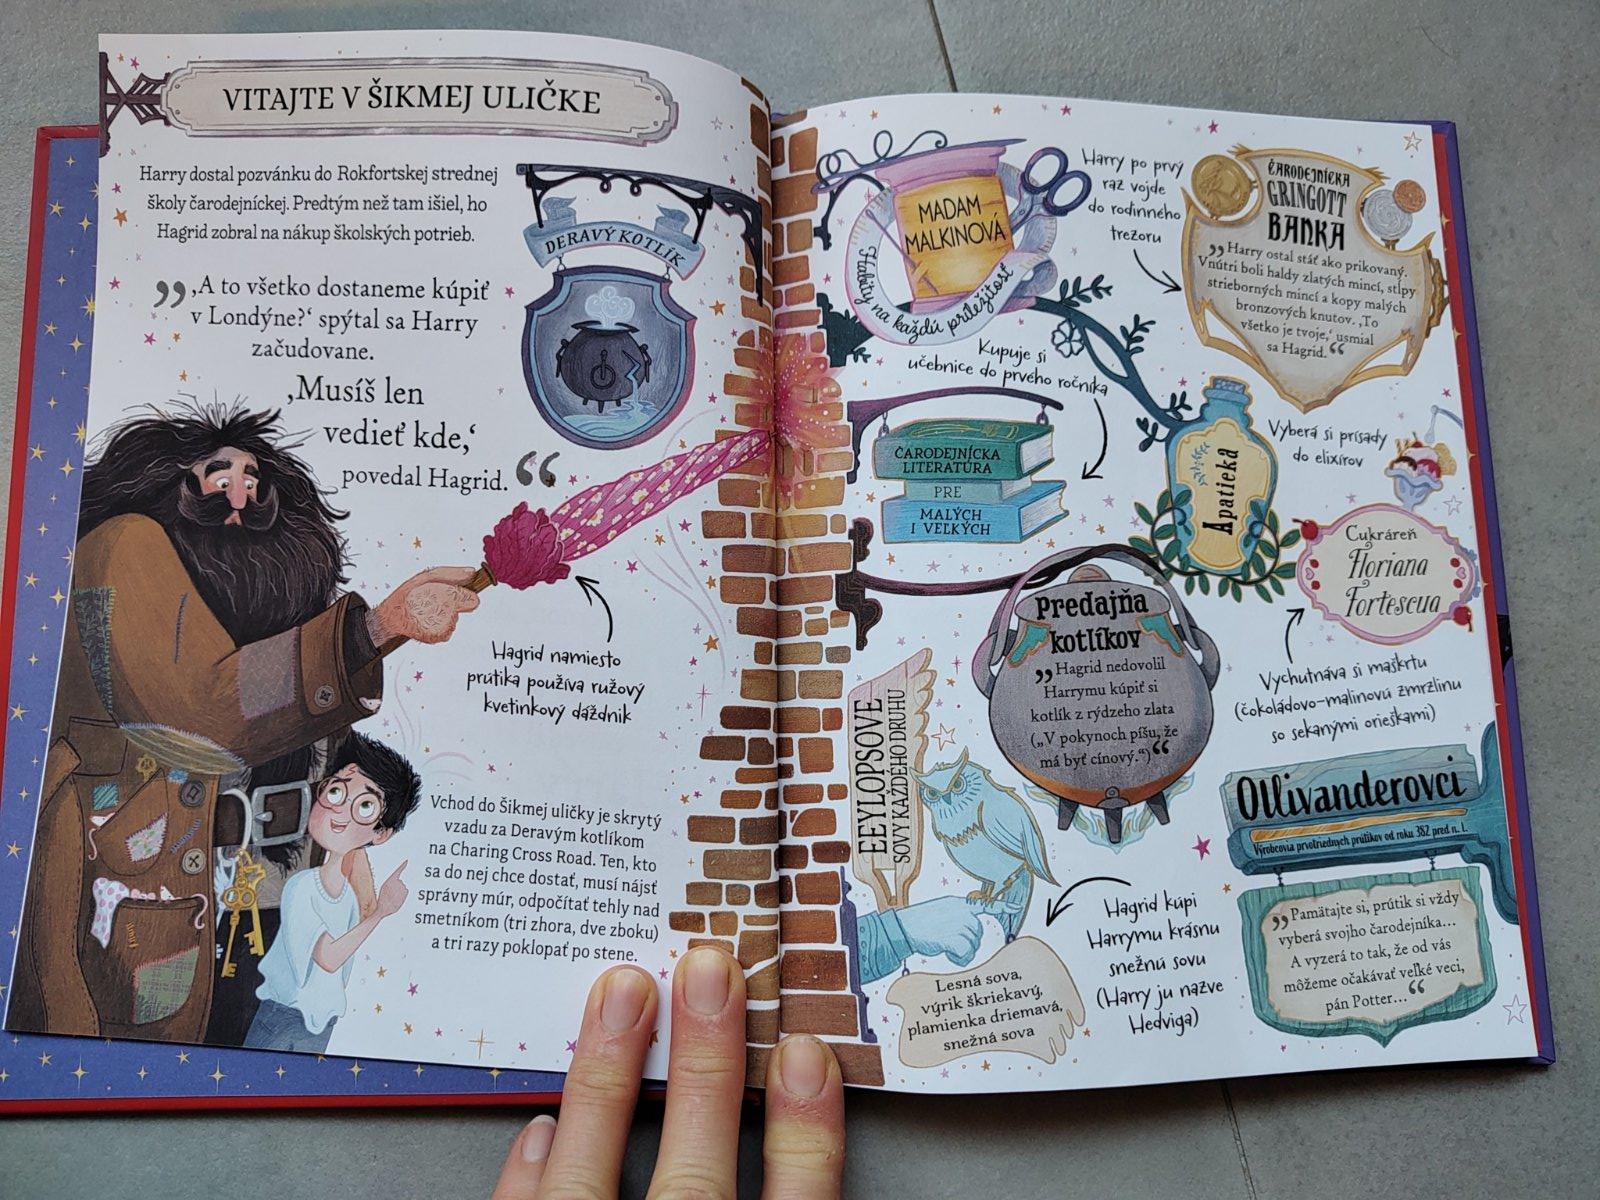 VITAJTE V ŠIKMEJ ULIČKE
Harry dostal pozvánku do Rokfortskej strednej
školy čarodejníckej. Predtým než tam išiel, ho
Hagrid zobral na nákup školských potrieb.
„‚A to všetko dostaneme kúpiť
v Londýne?‘ spýtal sa Harry
začudovane.
‚Musíš len
vedieť kde,‘
povedal Hagrid.“
DERAVÝ KOTLÍK
Hagrid namiesto
prútika používa ružový
kvetinkový dáždnik
Vchod do Šikmej uličky je skrytý
vzadu za Deravým kotlíkom
na Charing Cross Road. Ten, kto
sa do nej chce dostať, musí nájsť
správny múr, odpočítať tehly nad
smetníkom (tri zhora, dve zboku)
a tri razy poklopať po stene.
MADAM
MALKINOVÁ
Habity na každú príležitosť
Harry po prvý
raz vojde
do rodinného
trezoru
ČARODEJNÍCKA
GRINGOTT
BANKA
„Harry ostal stáť ako prikovaný.
Vnútri boli haldy zlatých mincí, stĺpy
strieborných mincí a kopy malých
bronzových knutov. ‚To
všetko je tvoje,‘ usmial
sa Hagrid.“
Kupuje si
učebnice do prvého ročníka
ČARODEJNÍCKA
LITERATÚRA
PRE
MALÝCH
I VEĽKÝCH
Apatieka
Vyberá si prísady
do elixírov
Cukráreň
Floriana
Fortescua
Vychutnáva si maškrtu
(čokoládovo-malinovú zmrzlinu
so sekanými orieškami)
Predajňa
kotlíkov
„Hagrid nedovolil
Harrymu kúpiť si
kotlík z rýdzeho zlata
(„V pokynoch píšu, že
má byť cínový.“)“
EEYLOPSOVE
SOVY KAŽDÉHO DRUHU
Lesná sova,
výrik škriekavý,
plamienka driemavá,
snežná sova
Hagrid kúpi
Harrymu krásnu
snežnú sovu
(Harry ju nazve
Hedviga)
Ollivanderovci
Výrobcovia prvotriednych prútikov od roku 382 pred n. l.
„Pamätajte si, prútik si vždy
vyberá svojho čarodejníka...
A vyzerá to tak, že od vás
môžeme očakávať veľké veci,
pán Potter...“